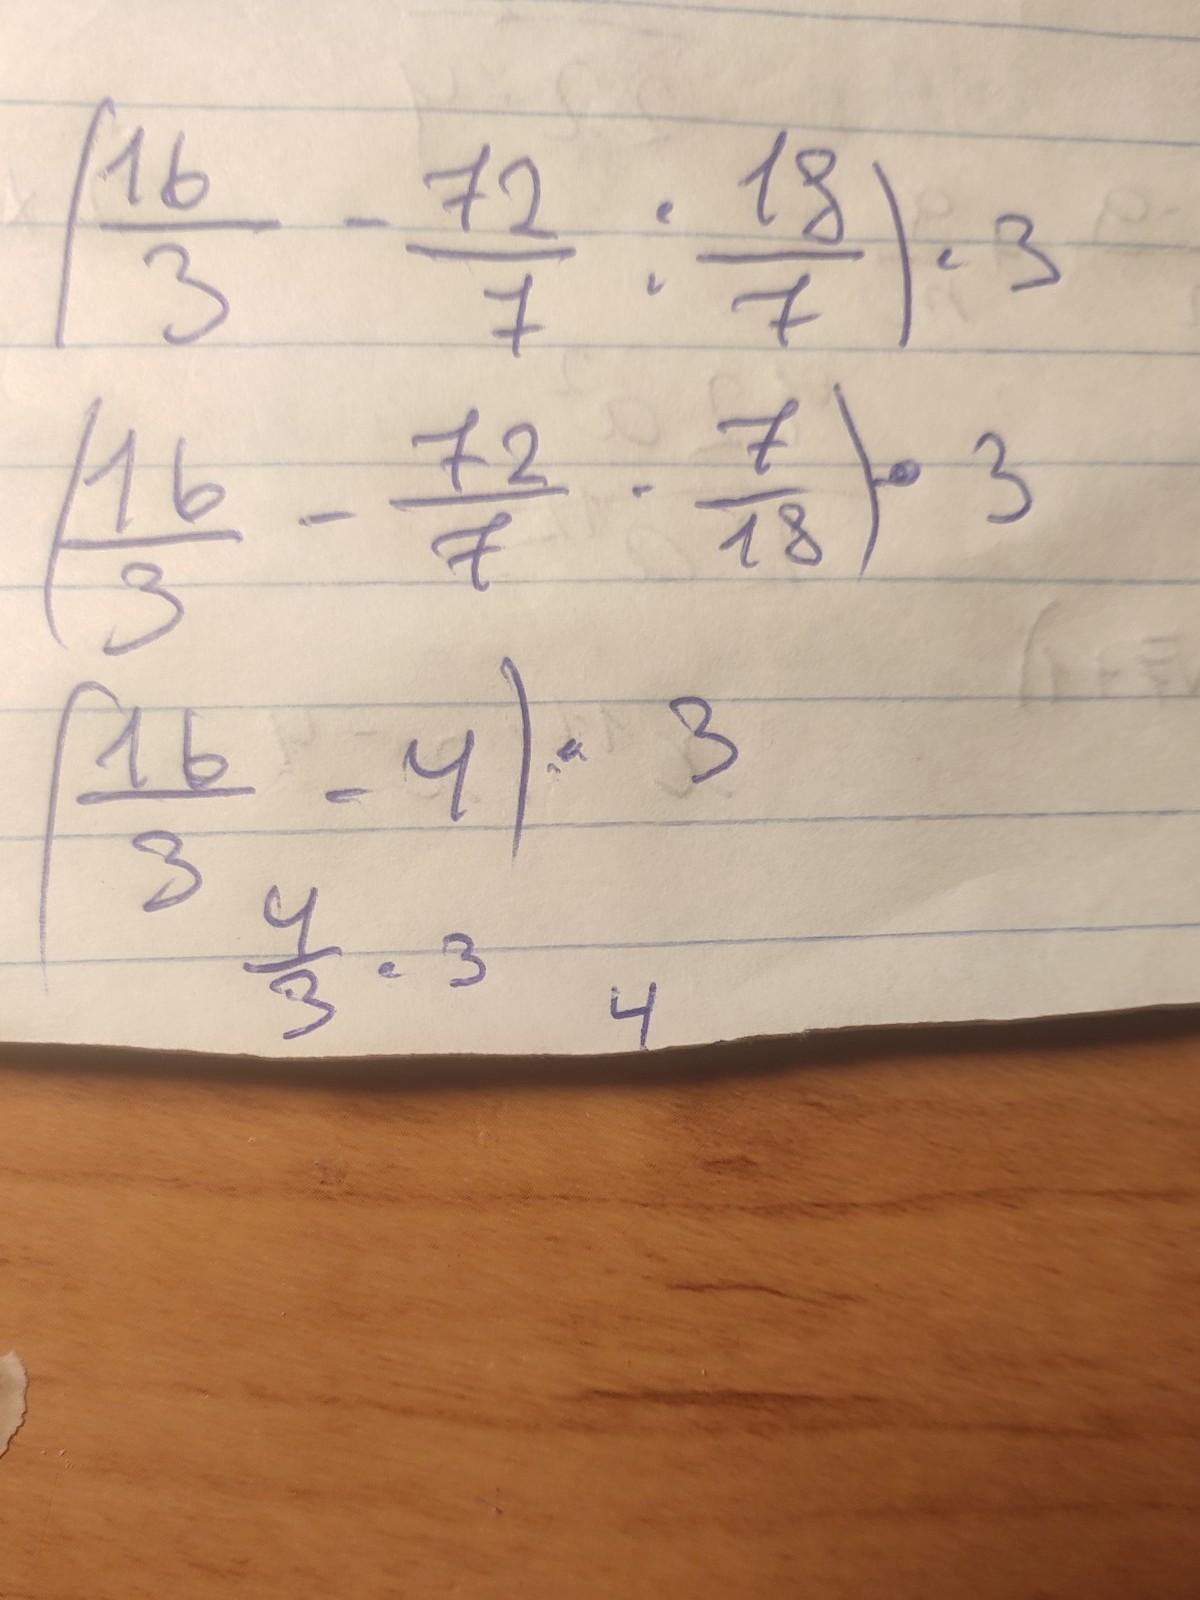 (16/3 - 72/7 : 18/7) · 3
(16/3 - 72/7 · 7/18) · 3
(16/3 - 4) · 3
4/3 · 3 4